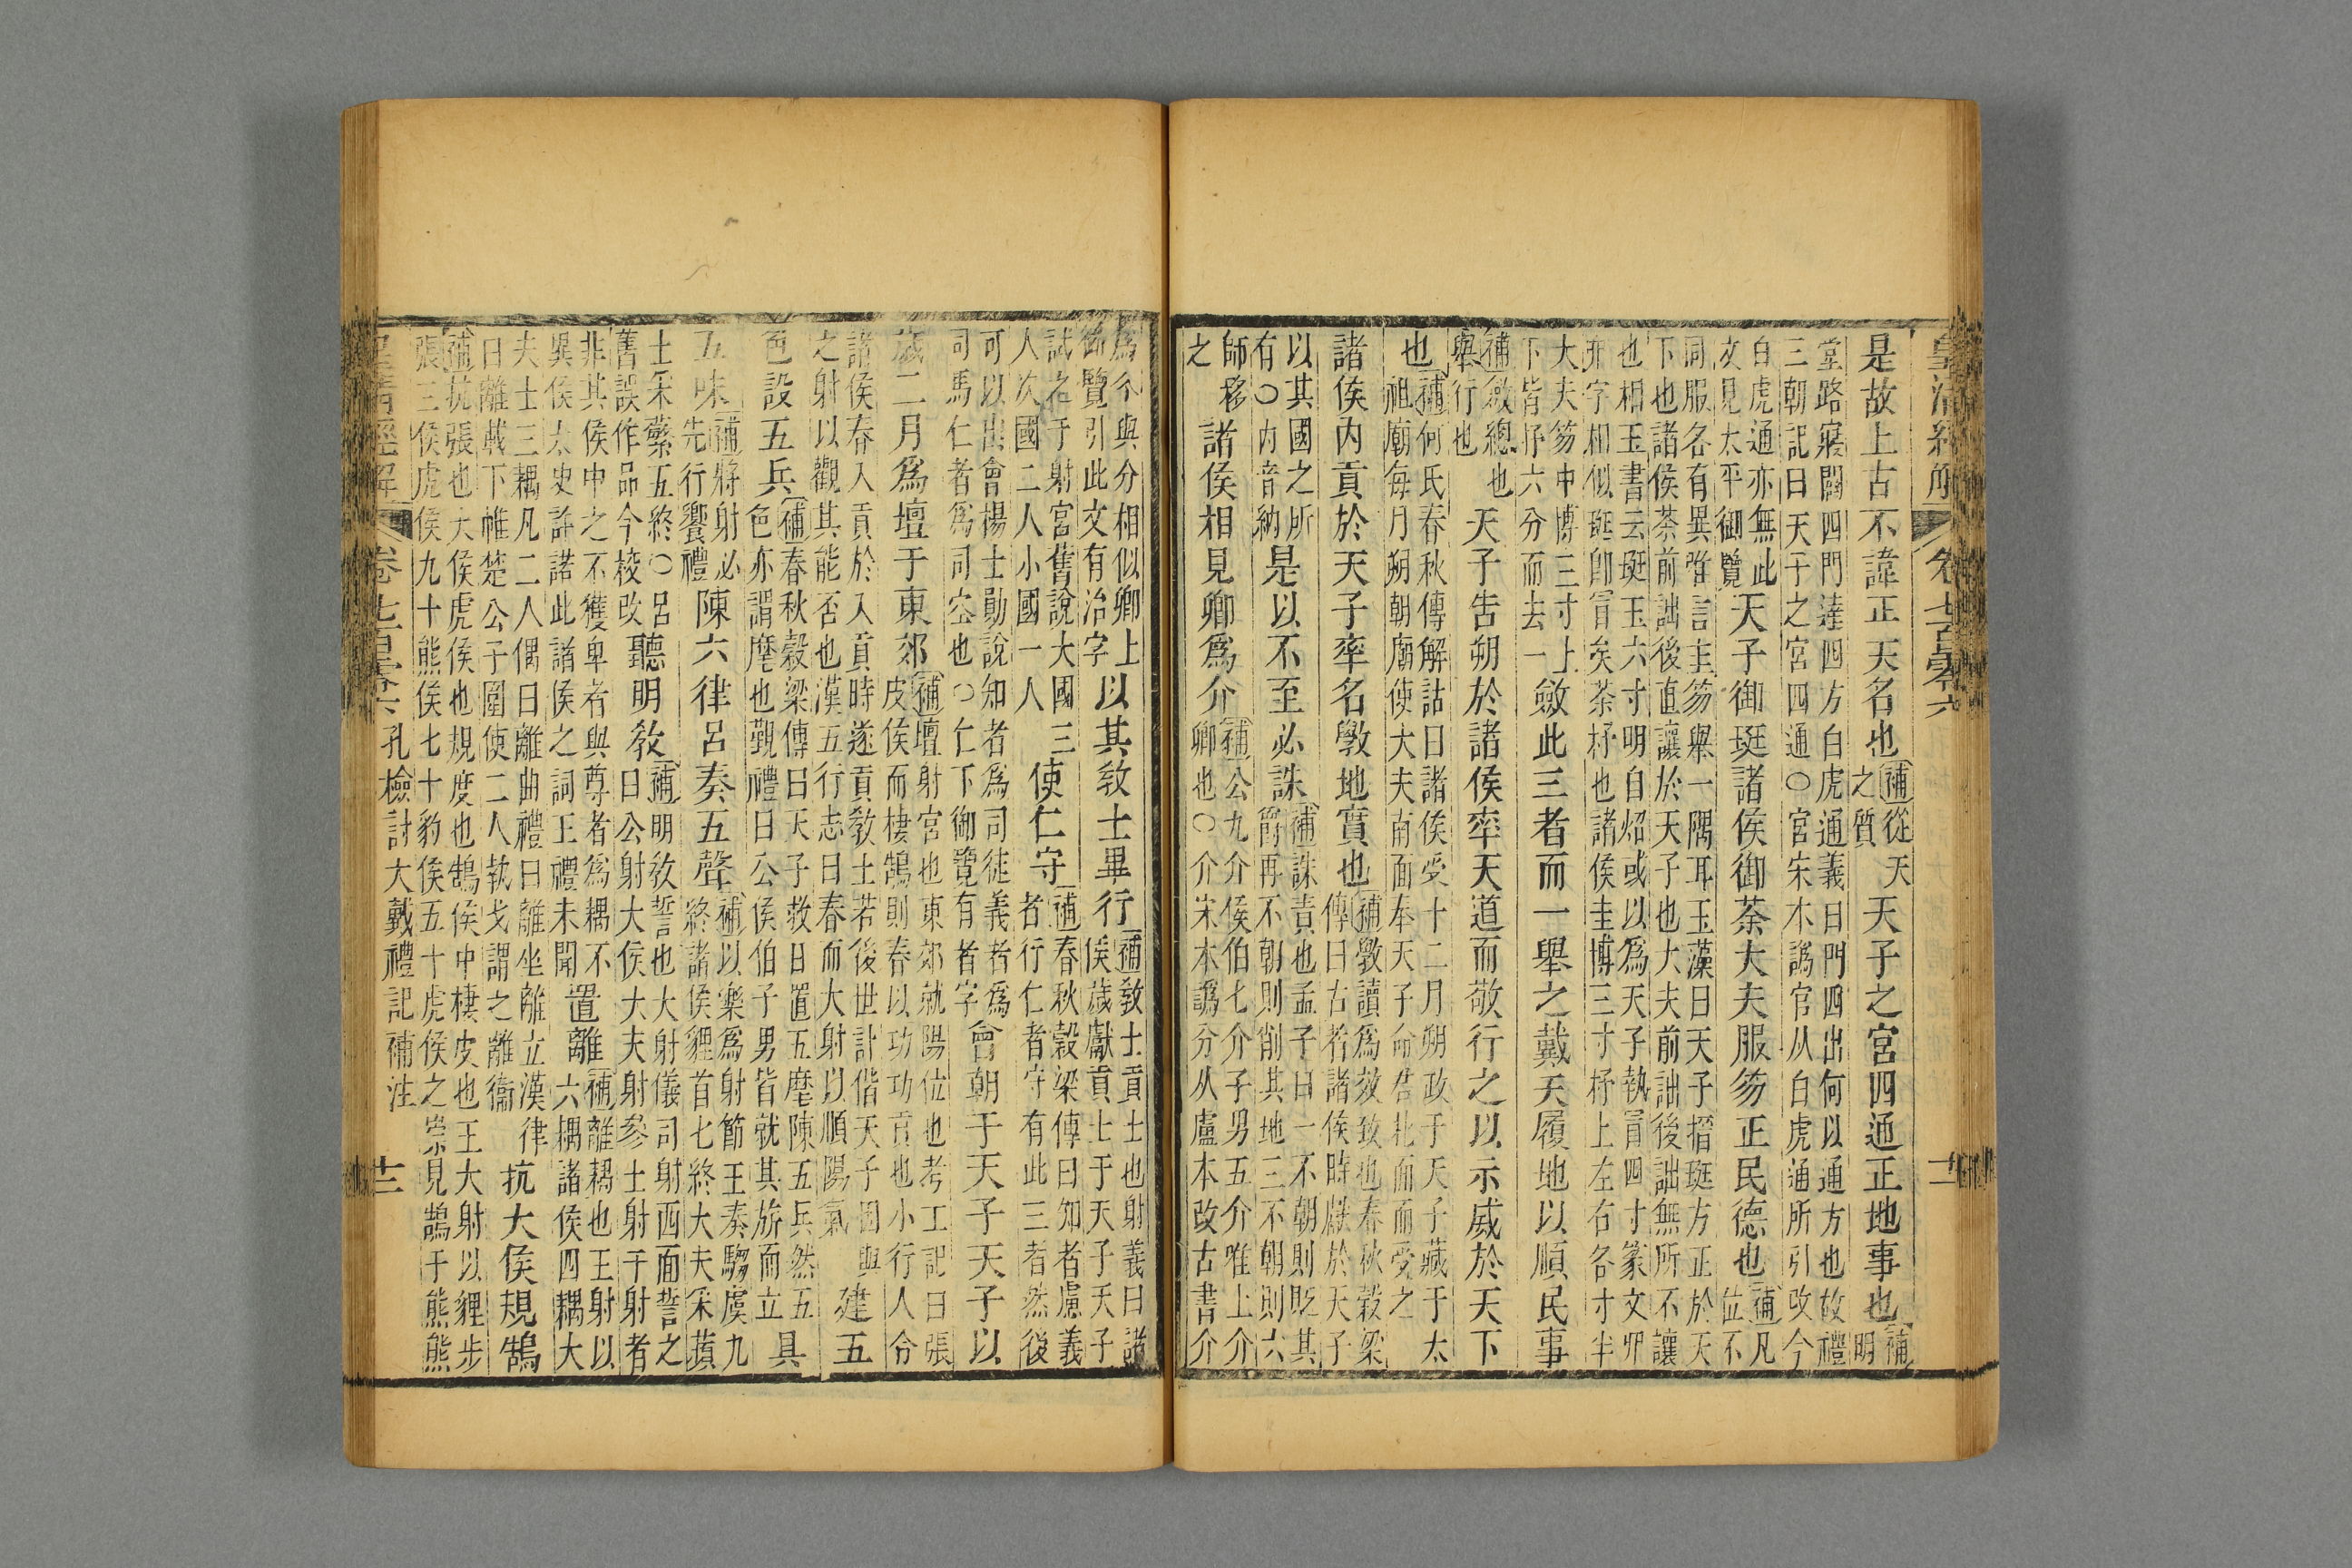 皇清經解 卷七百零六 二
是故上古不諱正天名也補從天之質天子之宮四通正地事也補明
堂路寢闢四門達四方白虎通義曰門四出何以通方也故禮
三朝記曰天子之宮四通○宮宋本譌官从白虎通所引改今
白虎通亦無此文見太平御覽天子御珽諸侯御荼大夫服笏正民德也補凡位不
同服各有異啻言圭笏舉一隅耳玉藻曰天子搢珽方正於天
下也諸侯荼前詘後直讓於天子也大夫前詘後詘無所不讓
也相玉書云珽玉六寸明自炤或以爲天子執冒四寸篆文
字相似珽卽冒矣荼杼也諸侯圭博三寸杼上左右各寸半
大夫笏中博三寸上下皆杼六分而去一斂此三者而一舉之戴天履地以順民事
補斂總也舉行也天子告朔於諸侯率天道而敬行之以示威於天下
也補何氏春秋傳解詁曰諸侯受十二月朔政于天子藏于太
祖廟每月朔朝廟使大夫南面奉天子命君北面而受之
諸侯內貢於天子率名斆地實也補斆讀爲效致也春秋穀梁
傳曰古者諸侯時獻於天子
以其國之所有○內音納是以不至必誅補誅責也孟子曰一不朝則貶其
爵再不朝則削其地三不朝則六
師移之諸侯相見卿爲介補公九介侯伯七介子男五介唯上介
卿也○介宋本譌分从盧本改古書介
爲尒與分相似卿上御覽引此文有治字以其敎士畢行補敎士貢士也射義曰諸
侯歲獻貢士于天子天子
試之于射宮舊說大國三人次國二人小國一人使仁守補春秋穀梁傳曰知者慮義
者行仁者守有此三者然後
可以出會楊士勛說知者爲司徒義者爲
司馬仁者爲司空也○仁下御覽有者字會朝于天子天子以
歲二月爲壇于東郊補壇射宮也東郊就陽位也考工記曰張
皮侯而棲鵠則春以功功貢也小行人令
諸侯春入貢於入貢時遂貢敎士若後世計偕天子因與
之射以觀其能否也漢五行志曰春而大射以順陽氣建五
色設五兵補春秋穀梁傳曰天子救日置五麾陳五兵然五
色亦謂麾也覲禮曰公侯伯子男皆就其旂而立具
五味補將射必先行饗禮陳六律呂奏五聲補以樂爲射節王奏騶虞九
終諸侯貍首七終大夫采蘋
士采蘩五終○呂舊誤作品今校改聽明敎補明敎誓也大射儀司射西面誓之
曰公射大侯大夫射參士射干射者
非其侯中之不獲卑者與尊者爲耦不
異侯太史許諾此諸侯之詞王禮未聞置離補離耦也王射以
六耦諸侯四耦大
夫士三耦凡二人偶曰離曲禮曰離坐離立漢律
曰離戟下帷楚公子圍使二人執戈謂之離衞抗大侯規鵠
補抗張也大侯虎侯也規度也鵠侯中棲皮也王大射以貍步
張三侯虎侯九十熊侯七十豹侯五十虎侯之崇見鵠于熊熊
皇清經解 卷七百零六孔檢討大戴禮記補注 十二